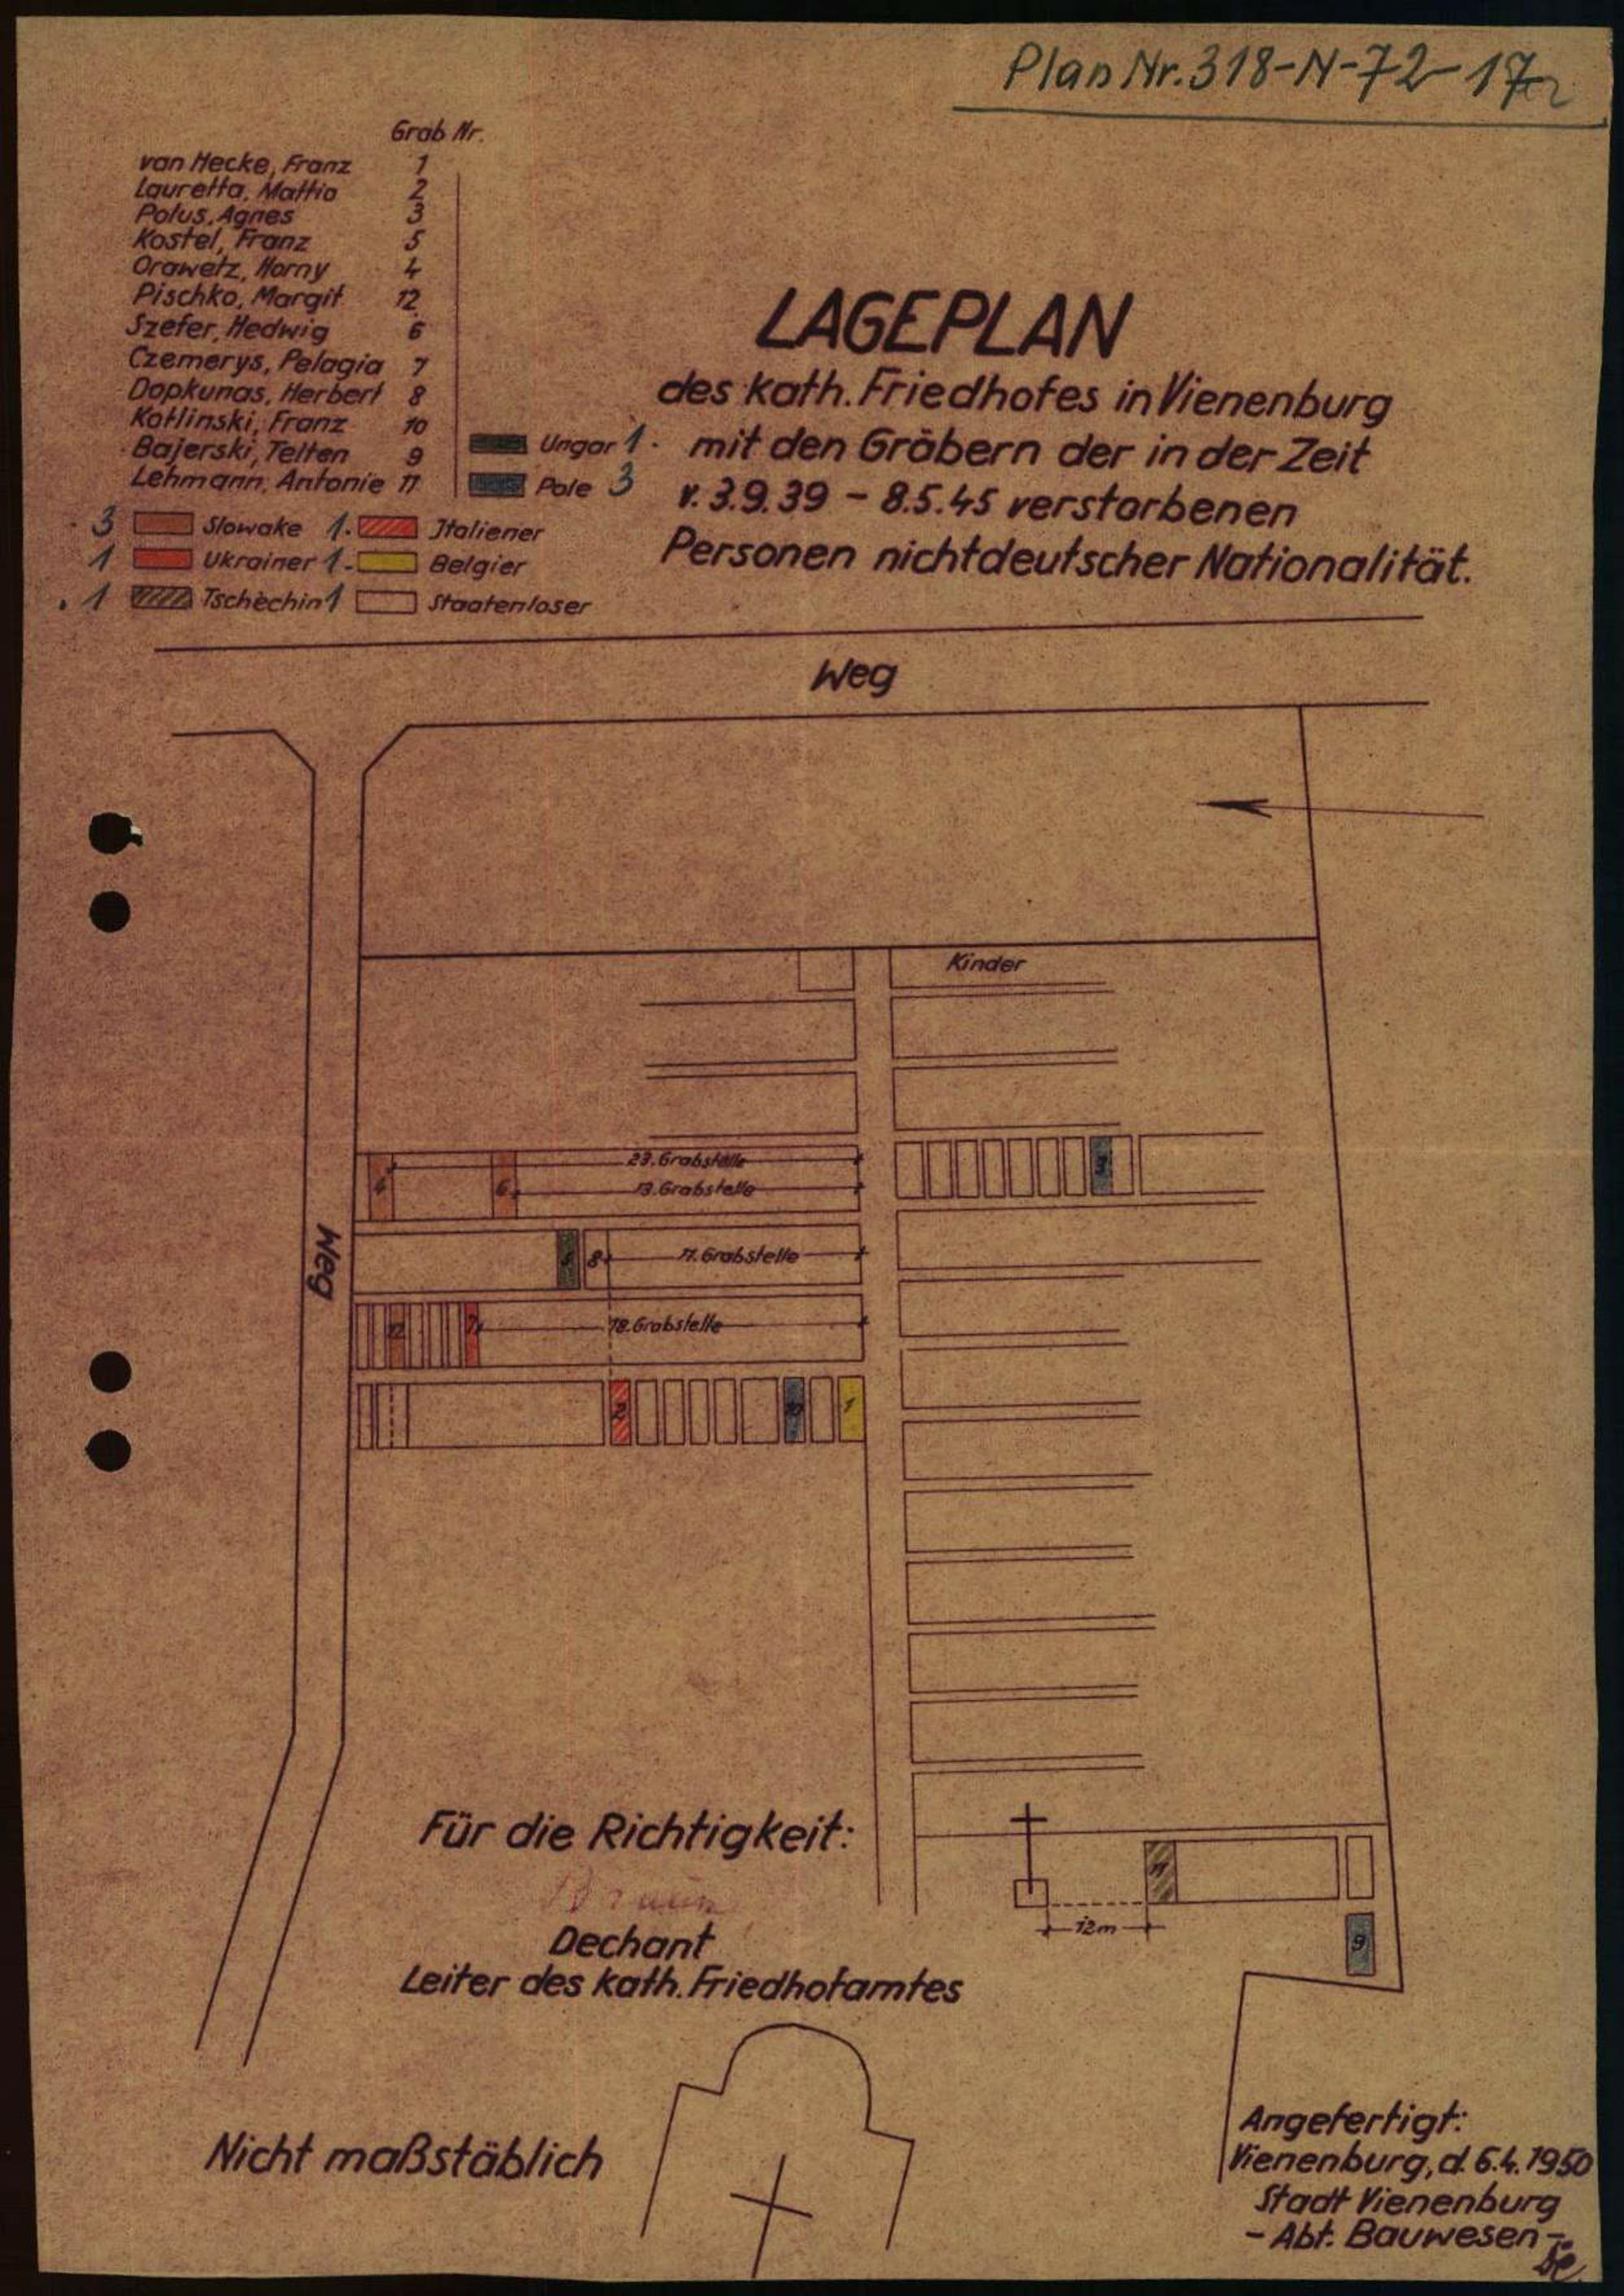 Plan Nr. 318-N-72-17
Grab Nr.
van Hecke, Franz 1
Lauretta, Mattio 2
Polus, Agnes 3
Kostel, Franz 5
Orawetz, Horny 4
Pischko, Margit 12
Szefer, Hedwig 6
Czemerys, Pelagia 7
Dopkunas, Herbert 8
Kotlinski, Franz 10
Bajerski, Telten 9
Lehmann, Antonie 11
Ungar 1.
Pole 3
3 Slowake 1. Italiener
1 Ukrainer 1. Belgier
1 Tschechin 1 Staatenloser
LAGEPLAN
des kath. Friedhofes in Vienenburg
mit den Gräbern der in der Zeit
v. 3.9.39 - 8.5.45 verstorbenen
Personen nichtdeutscher Nationalität.
Weg
Kinder
4 23. Grabstelle
6 13. Grabstelle
3
Weg
5 8 11. Grabstelle
12 7 18. Grabstelle
2 10 1
Für die Richtigkeit:
Dechant
Leiter des kath. Friedhofamtes
11
12m
9
Nicht maßstäblich
Angefertigt:
Vienenburg, d. 6.4.1950
Stadt Vienenburg
- Abt. Bauwesen -